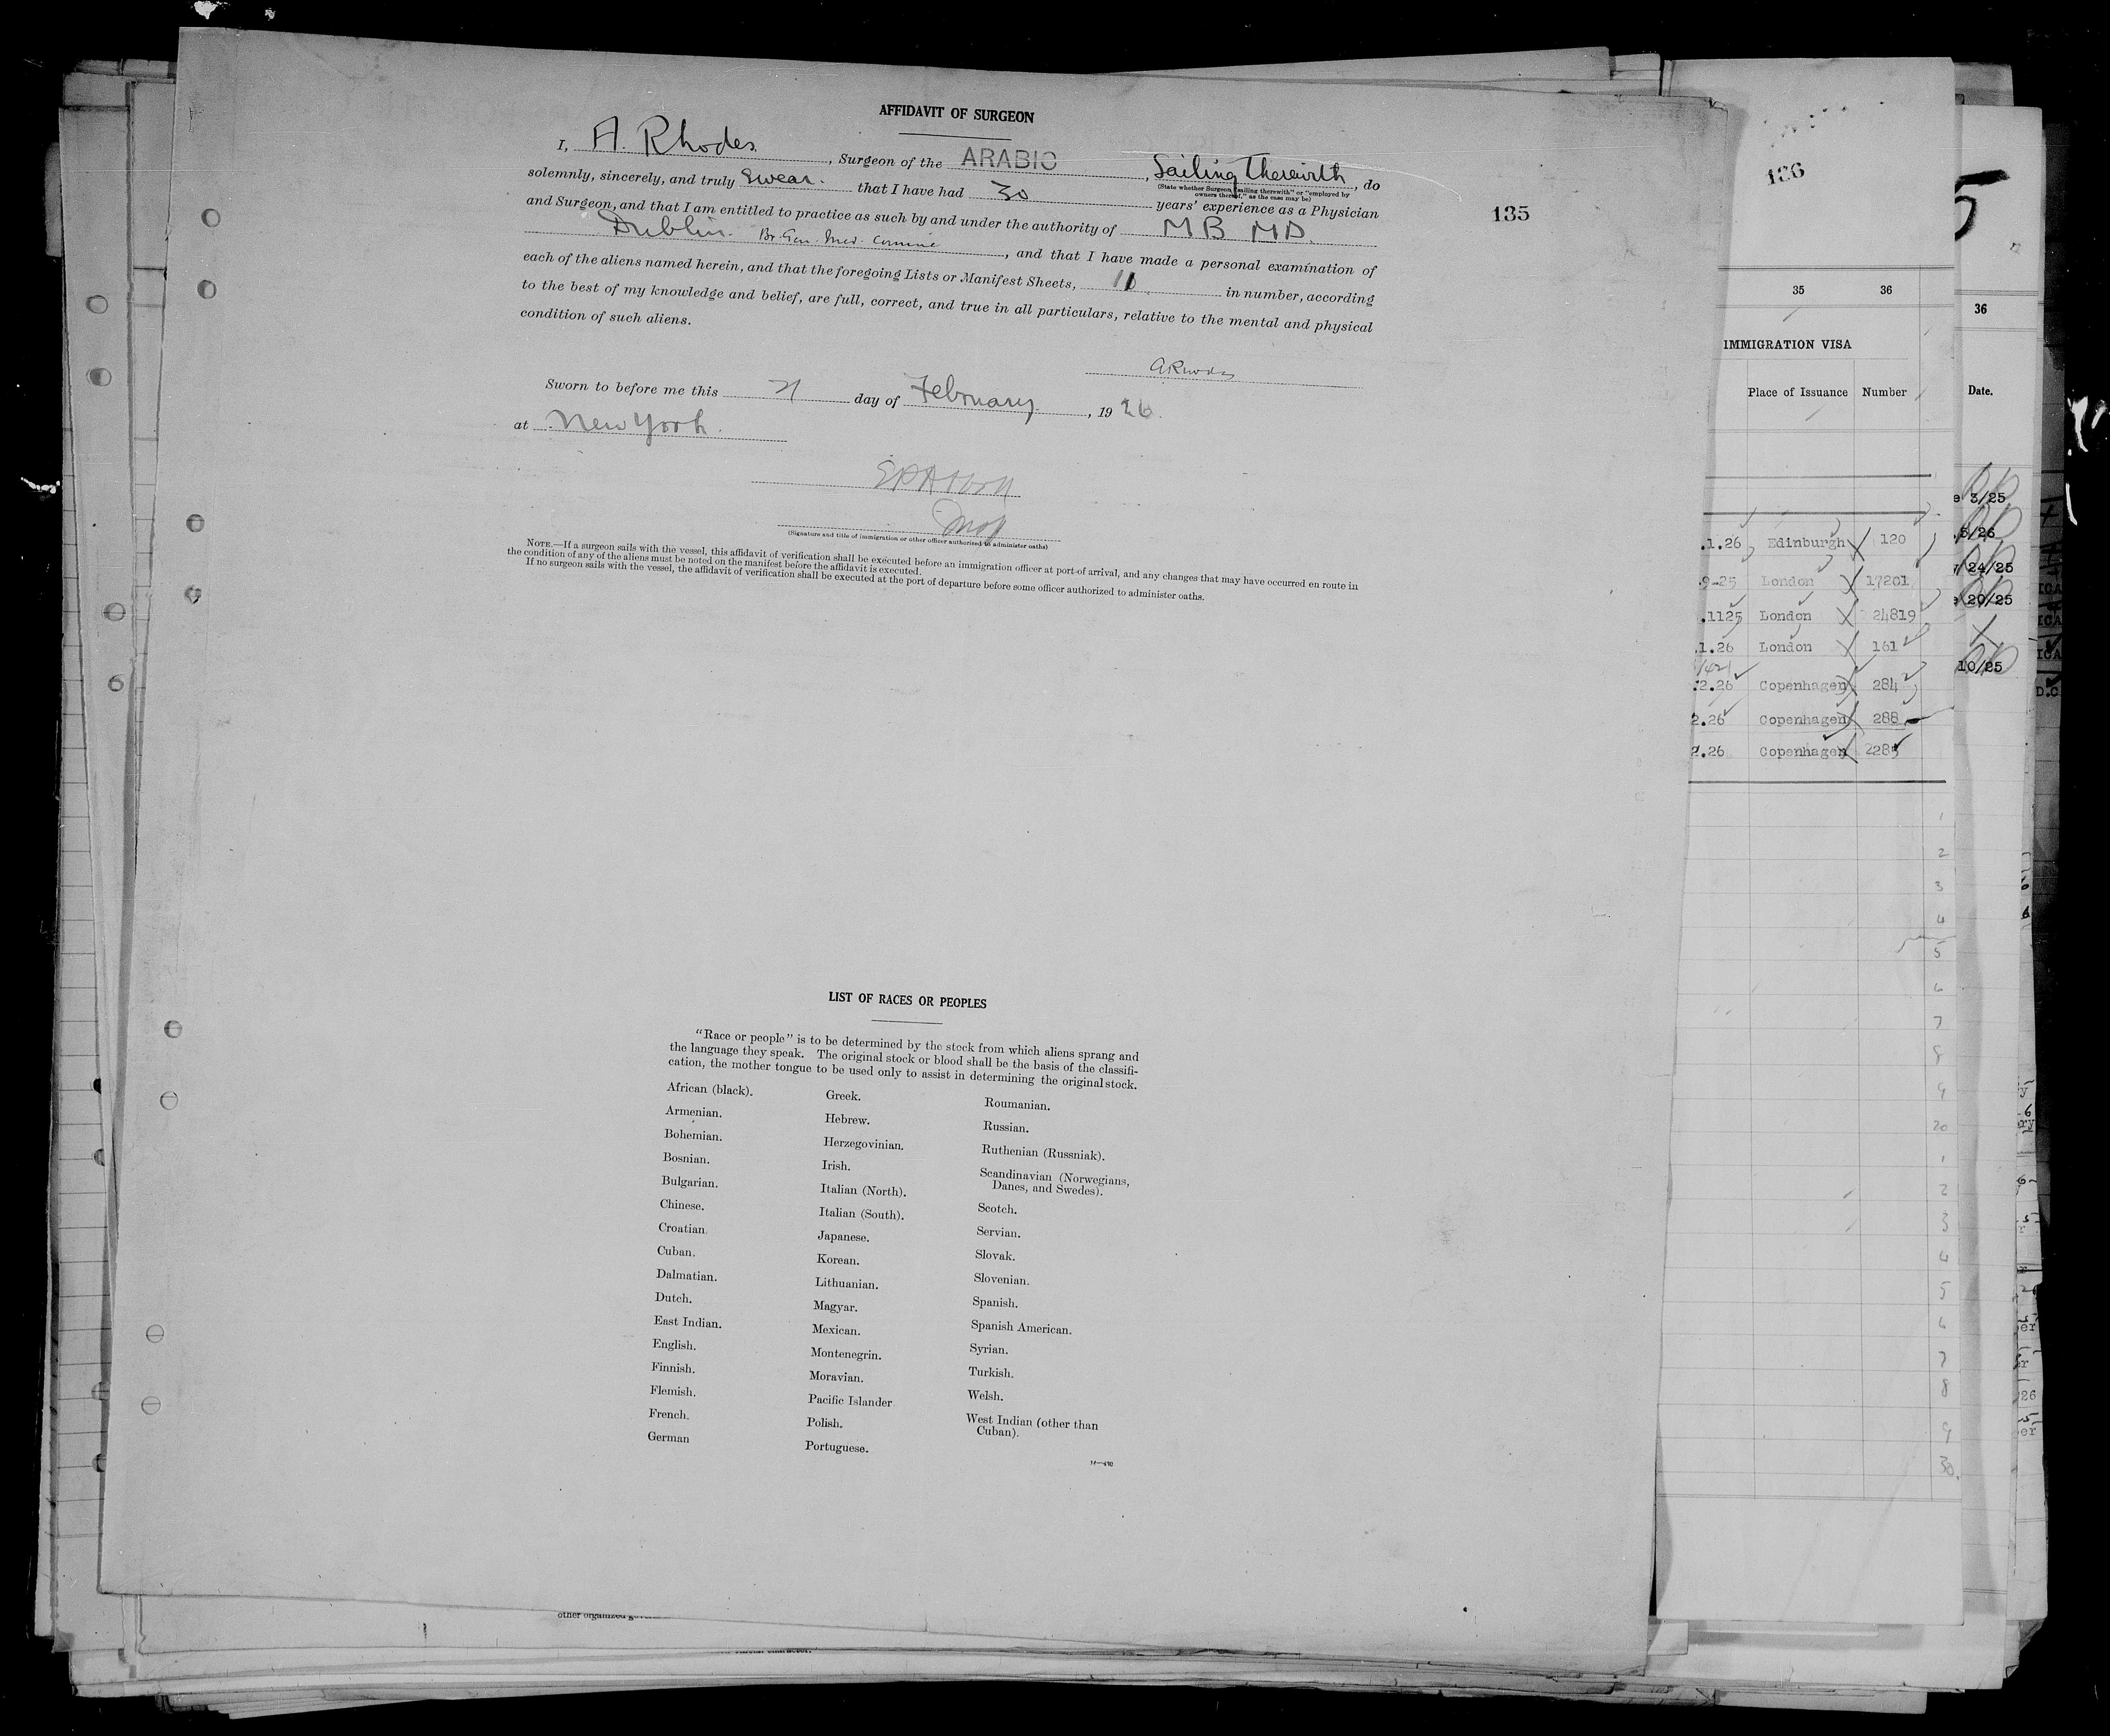 AFFIDAVIT OF SURGEON
I, A. Rhodes, Surgeon of the ARABIC, Sailing Therewith, do
(State whether Surgeon "sailing therewith" or "employed by
owners thereof," as the case may be)
solemnly, sincerely, and truly swear. that I have had 30 years' experience as a Physician
and Surgeon, and that I am entitled to practice as such by and under the authority of M B M D.
Dublin. Br. Gen. Med., and that I have made a personal examination of
each of the aliens named herein, and that the foregoing Lists or Manifest Sheets, in number, according
to the best of my knowledge and belief, are full, correct, and true in all particulars, relative to the mental and physical
condition of such aliens.
A Rhodes
Sworn to before me this day of February, 1926.
at New York.
(Signature and title of immigration or other officer authorized to administer oaths)
NOTE.—If a surgeon sails with the vessel, this affidavit of verification shall be executed before an immigration officer at port of arrival, and any changes that may have occurred en route in
the condition of any of the aliens must be noted on the manifest before the affidavit is executed.
If no surgeon sails with the vessel, the affidavit of verification shall be executed at the port of departure before some officer authorized to administer oaths.
135
LIST OF RACES OR PEOPLES
"Race or people" is to be determined by the stock from which aliens sprang and
the language they speak. The original stock or blood shall be the basis of the classifi-
cation, the mother tongue to be used only to assist in determining the original stock.
African (black).
Armenian.
Bohemian.
Bosnian.
Bulgarian.
Chinese.
Croatian.
Cuban.
Dalmatian.
Dutch.
East Indian.
English.
Finnish.
Flemish.
French.
German
Greek.
Hebrew.
Herzegovinian.
Irish.
Italian (North).
Italian (South).
Japanese.
Korean.
Lithuanian.
Magyar.
Mexican.
Montenegrin.
Moravian.
Pacific Islander
Polish.
Portuguese.
Roumanian.
Russian.
Ruthenian (Russniak).
Scandinavian (Norwegians,
Danes, and Swedes).
Scotch.
Servian.
Slovak.
Slovenian.
Spanish.
Spanish American.
Syrian.
Turkish.
Welsh.
West Indian (other than
Cuban).
136
35 36
IMMIGRATION VISA
Place of Issuance Number
.1.26 Edinburgh 120
9-25 London 17201
.1125 London 24819
.1.26 London 161
2.26 Copenhagen 284
2.26 Copenhagen 288
2.26 Copenhagen 2285
1
2
3
4
5
6
7
8
9
20
1
2
3
4
5
6
7
8
9
30
5
36
Date.
3/25
5/26
24/25
20/25
10/25
other organized